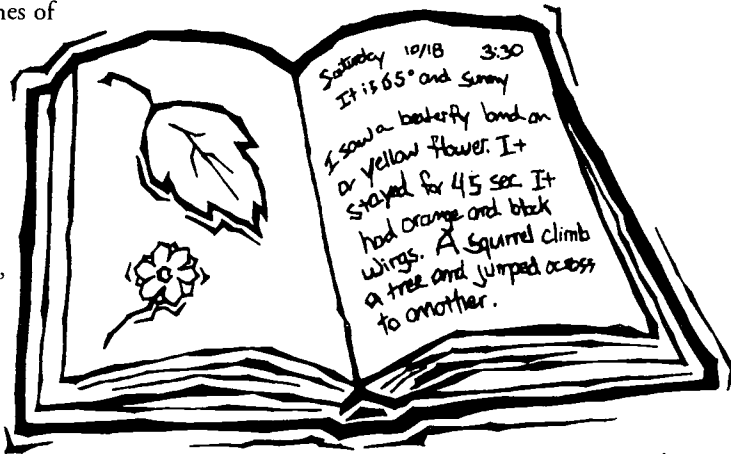 nes of
,
Saturday 10/18 3:30
It is 65° and sunny
I saw a beaterfly land on
a yellow flower. It
stayed for 45 sec. It
had orange and black
wings. A squirrel climb
a tree and jumped across
to another.